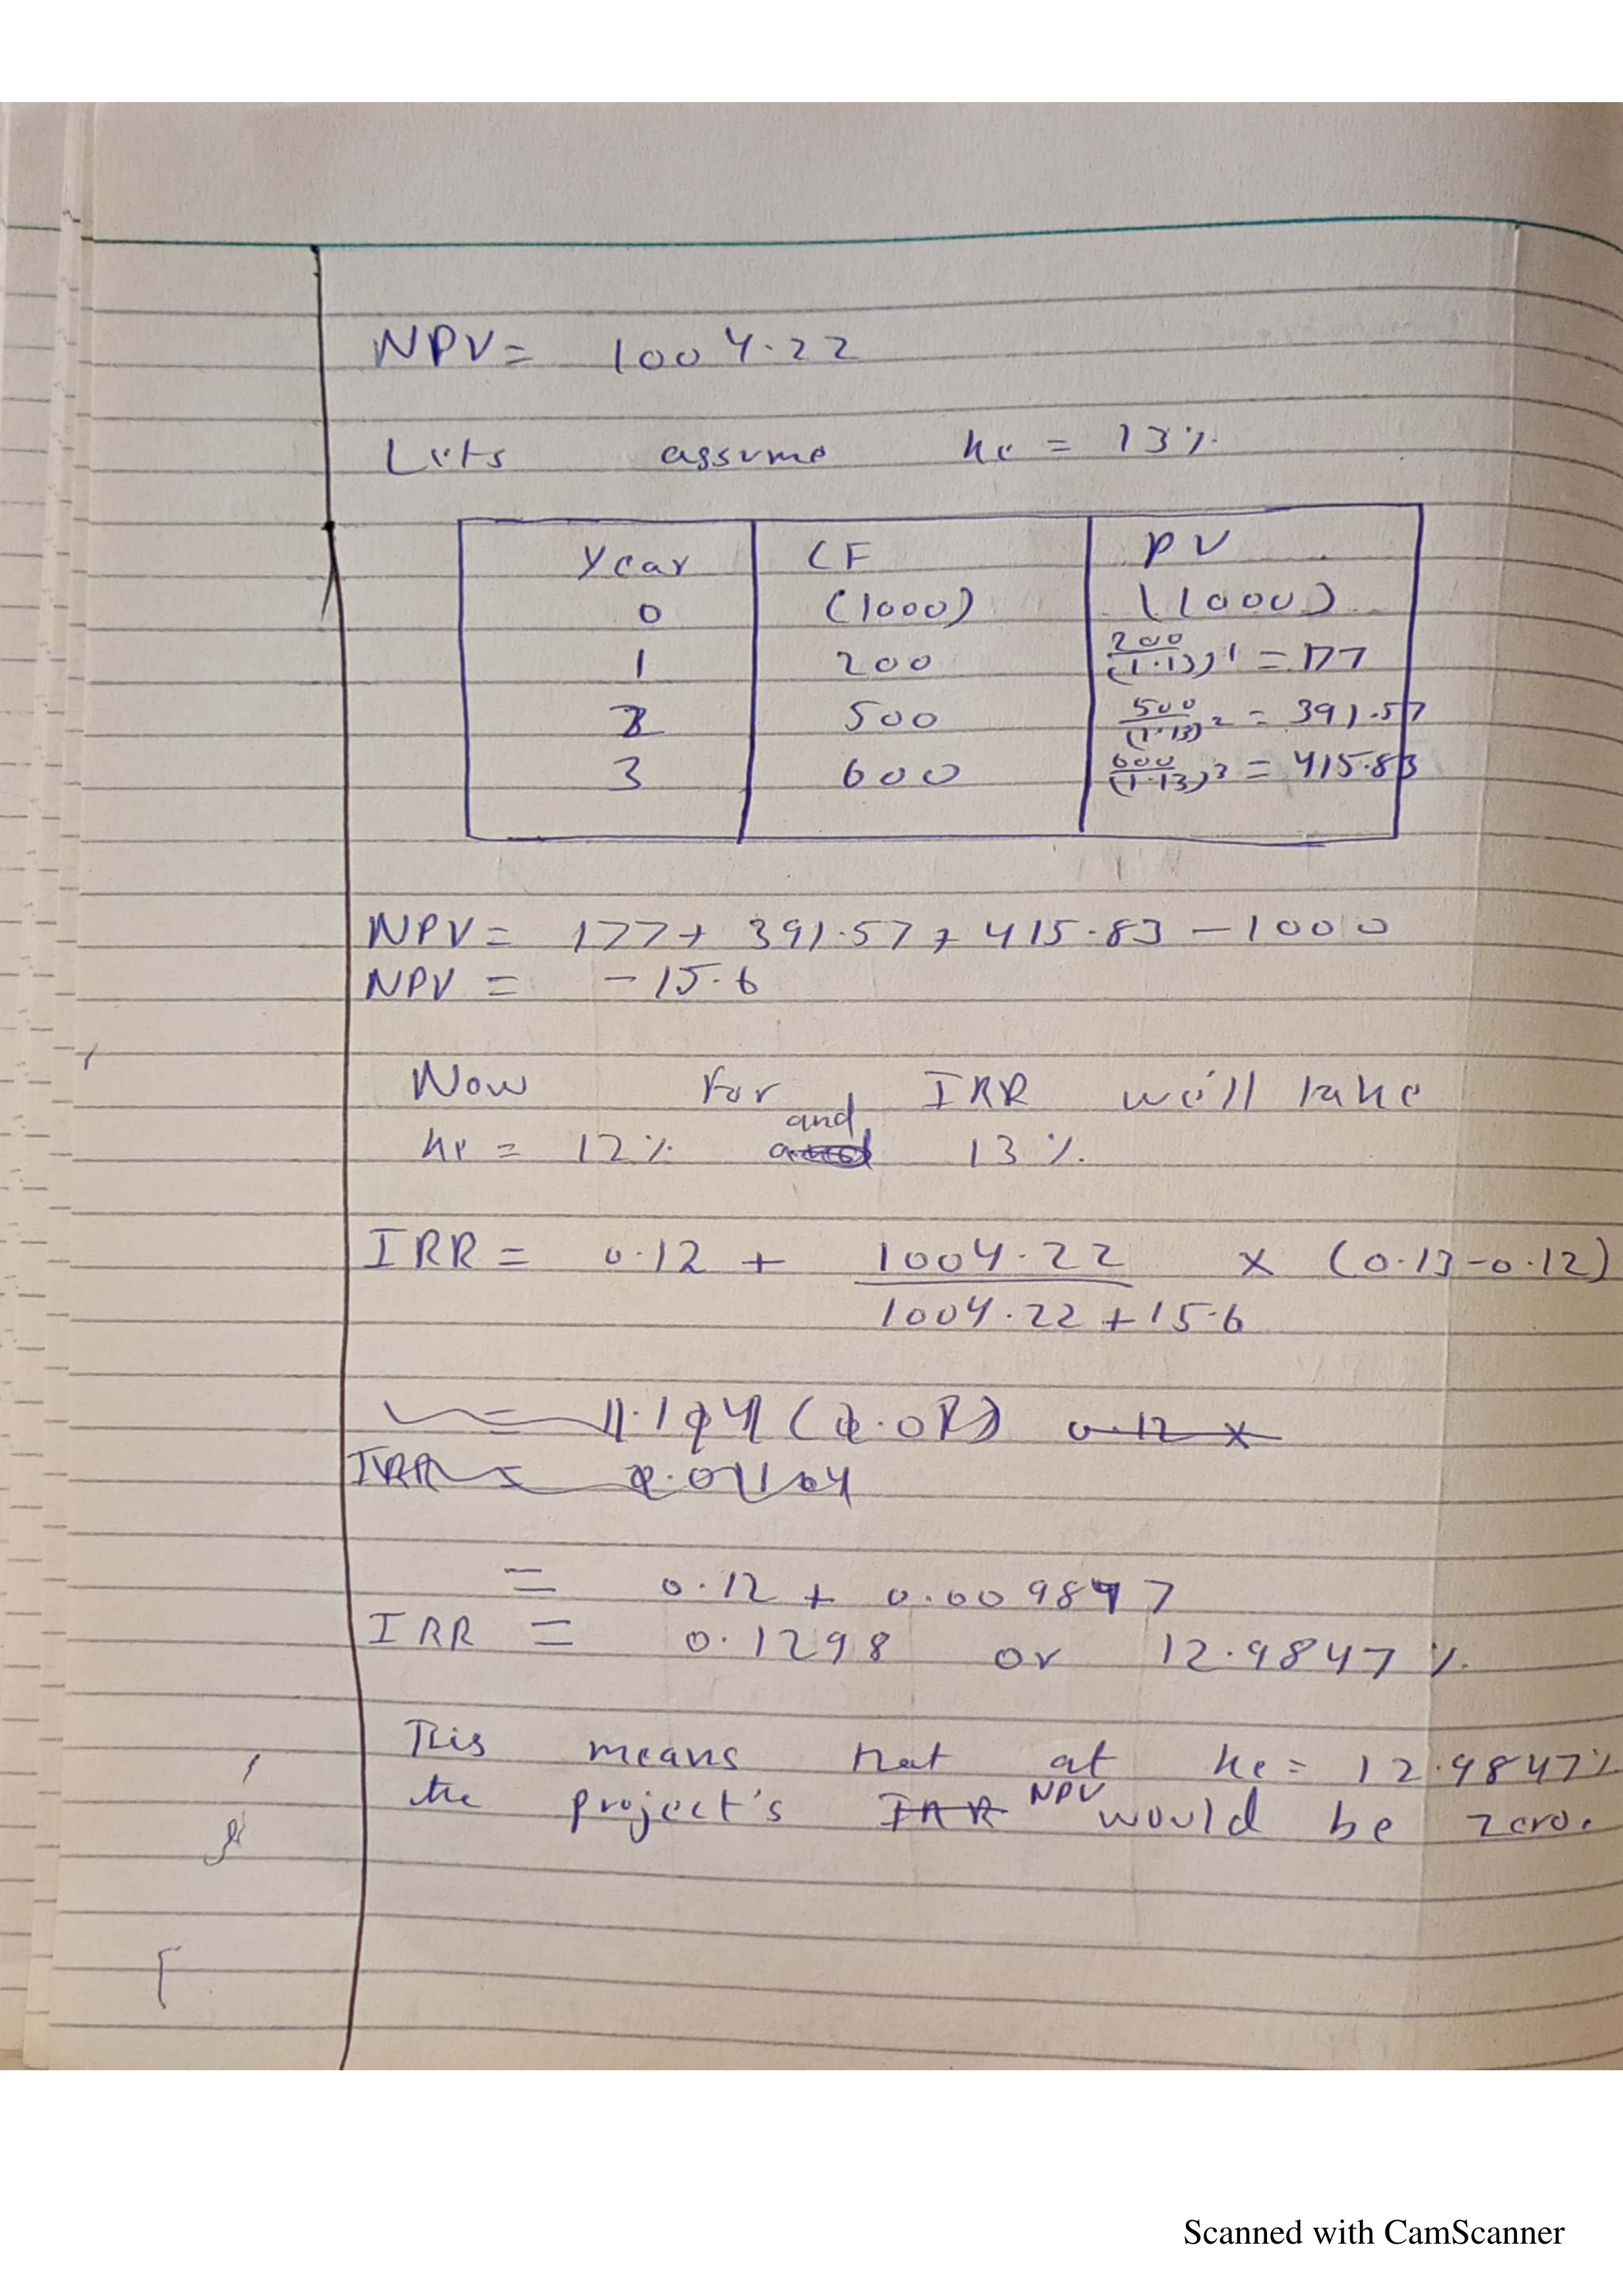 NPV = 1004.22
Lets assume ke = 13%
Year CF PV
0 (1000) (1000)
1 200 200/(1.13)^1 = 177
2 500 500/(1.13)^2 = 391.57
3 600 600/(1.13)^3 = 415.83
NPV = 177 + 391.57 + 415.83 - 1000
NPV = -15.6
Now for IRR we'll take
ke = 12% and 13%
IRR = 0.12 + 1004.22 × (0.13-0.12)
1004.22 + 15.6
0.12 ×
IRR =
= 0.12 + 0.009847
IRR = 0.1298 or 12.9847%
This means that at ke = 12.9847%
the project's IRR NPV would be zero.
Scanned with CamScanner